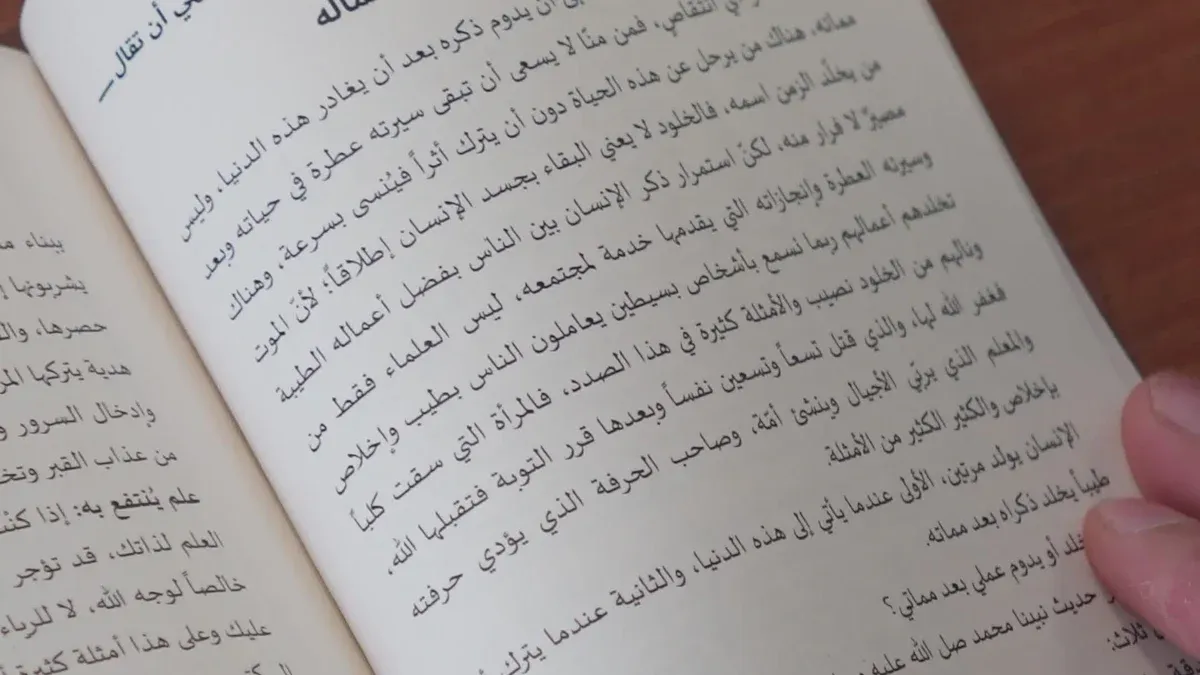 أن تقال
أن يدوم ذكره بعد أن يغادر هذه الدنيا، وليس
انتقاص، فمن منّا لا يسعى أن تبقى سيرته عطرة في حياته وبعد
مماته، هناك من يرحل عن هذه الحياة دون أن يترك أثراً فيُنسى بسرعة، وهناك
من يخلّد الزمن اسمه، فالخلود لا يعني البقاء بجسد الإنسان إطلاقاً؛ لأنّ الموت
مصيرٌ لا فرار منه، لكنّ استمرار ذكر الإنسان بين الناس بفضل أعماله الطيبة
وسيرته العطرة وإنجازاته التي يقدمها خدمة لمجتمعه، ليس العلماء فقط من
تخلدهم أعمالهم ربما نسمع بأشخاص بسيطين يعاملون الناس بطيب وإخلاص
ونالهم من الخلود نصيب والأمثلة كثيرة في هذا الصدد، فالمرأة التي سقت كلباً
فغفر الله لها، والذي قتل تسعاً وتسعين نفساً وبعدها قرر التوبة فتقبلها الله،
والمعلم الذي يربّي الأجيال وينشئ أمّة، وصاحب الحرفة الذي يؤدي حرفته
بإخلاص والكثير الكثير من الأمثلة.
الإنسان يولد مرتين، الأولى عندما يأتي إلى هذه الدنيا، والثانية عندما يترك
طيباً يخلد ذكراه بعد مماته.
أو يدوم عملي بعد مماتي؟
حديث نبينا محمد صل الله عليه
ثلاث:
ببناء
يشربونها
حصرها،
هدية يتركها
وإدخال السرور
من عذاب القبر
علم يُنتفع به: إذا
العلم لذاتك، قد تؤجر
خالصاً لوجه الله، لا للرياء
عليك وعلى هذا أمثلة كثيرة